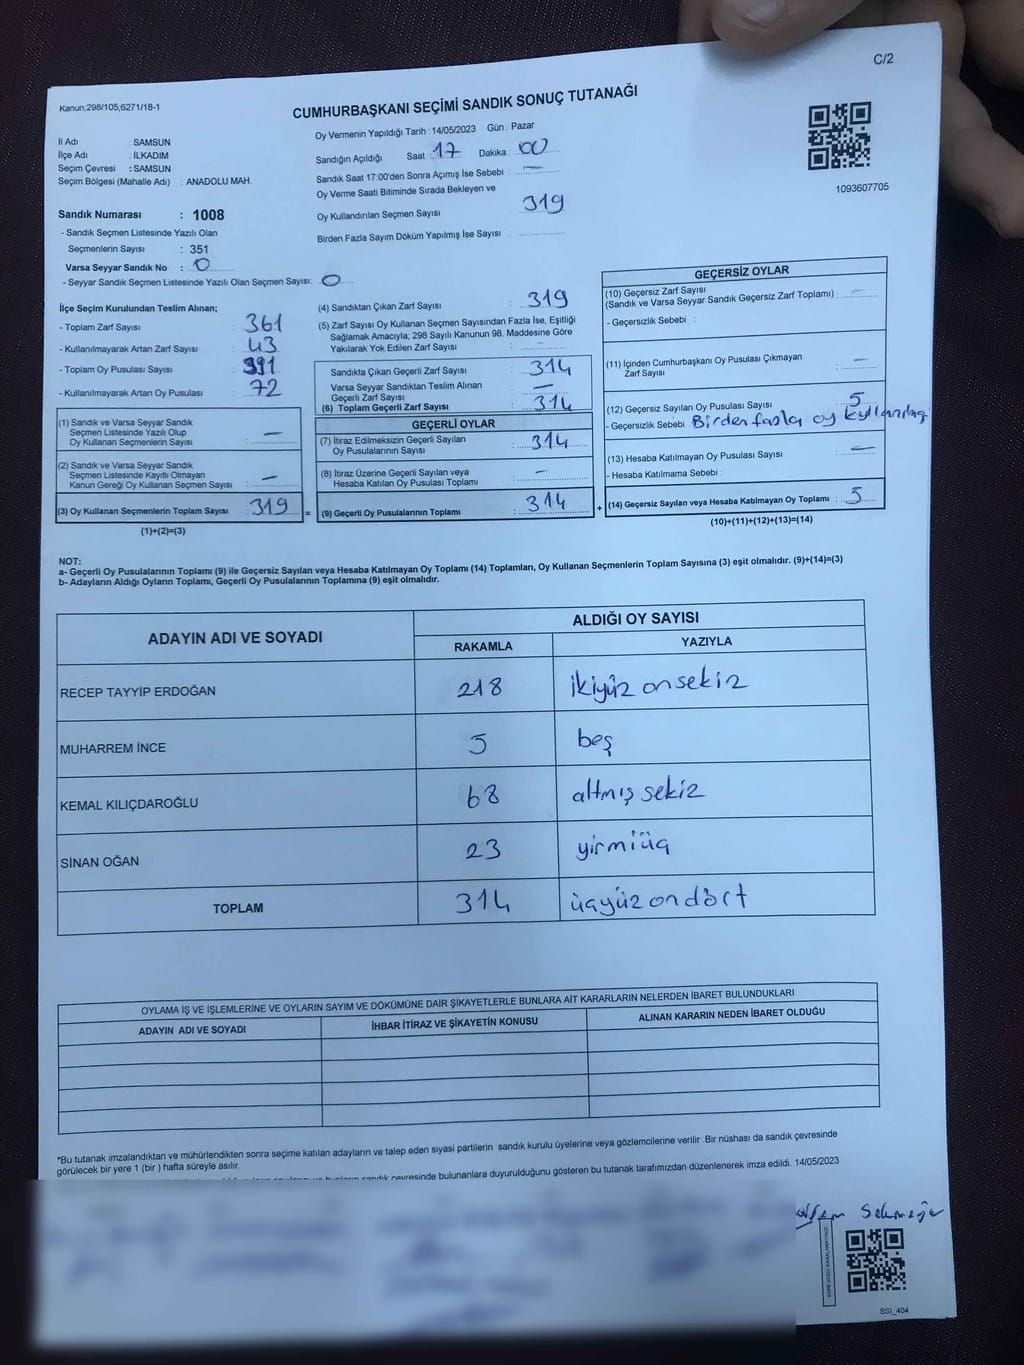 C/2
Kanun;298/105,6271/18-1
CUMHURBAŞKANI SEÇİMİ SANDIK SONUÇ TUTANAĞI
İl Adı : SAMSUN
İlçe Adı : İLKADIM
Seçim Çevresi : SAMSUN
Seçim Bölgesi (Mahalle Adı) : ANADOLU MAH.
Sandık Numarası : 1008
- Sandık Seçmen Listesinde Yazılı Olan
Seçmenlerin Sayısı : 351
Varsa Seyyar Sandık No : 0
- Seyyar Sandık Seçmen Listesinde Yazılı Olan Seçmen Sayısı: 0
Oy Vermenin Yapıldığı Tarih : 14/05/2023 Gün : Pazar
Sandığın Açıldığı Saat 17 Dakika : 00
Sandık Saat 17:00'den Sonra Açımış İse Sebebi : —
Oy Verme Saati Bitiminde Sırada Bekleyen ve
Oy Kullandırılan Seçmen Sayısı : 319
Birden Fazla Sayım Döküm Yapılmış İse Sayısı :
1093607705
İlçe Seçim Kurulundan Teslim Alınan;
- Toplam Zarf Sayısı : 361
- Kullanılmayarak Artan Zarf Sayısı : 43
- Toplam Oy Pusulası Sayısı : 391
- Kullanılmayarak Artan Oy Pusulası : 72
(1) Sandık ve Varsa Seyyar Sandık
Seçmen Listesinde Yazılı Olup
Oy Kullanan Seçmenlerin Sayısı : —
(2) Sandık ve Varsa Seyyar Sandık
Seçmen Listesinde Kayıtlı Olmayan
Kanun Gereği Oy Kullanan Seçmen Sayısı : —
(3) Oy Kullanan Seçmenlerin Toplam Sayısı : 319
(1)+(2)=(3)
(4) Sandıktan Çıkan Zarf Sayısı : 319
(5) Zarf Sayısı Oy Kullanan Seçmen Sayısından Fazla İse, Eşitliği
Sağlamak Amacıyla; 298 Sayılı Kanunun 98. Maddesine Göre
Yakılarak Yok Edilen Zarf Sayısı : —
Sandıkta Çıkan Geçerli Zarf Sayısı : 314
Varsa Seyyar Sandıktan Teslim Alınan
Geçerli Zarf Sayısı : —
(6) Toplam Geçerli Zarf Sayısı : 314
GEÇERLİ OYLAR
(7) İtiraz Edilmeksizin Geçerli Sayılan
Oy Pusulalarının Sayısı : 314
(8) İtiraz Üzerine Geçerli Sayılan veya
Hesaba Katılan Oy Pusulası Toplamı : —
= (9) Geçerli Oy Pusulalarının Toplamı : 314 +
GEÇERSİZ OYLAR
(10) Geçersiz Zarf Sayısı
(Sandık ve Varsa Seyyar Sandık Geçersiz Zarf Toplamı) : —
- Geçersizlik Sebebi :
(11) İçinden Cumhurbaşkanı Oy Pusulası Çıkmayan
Zarf Sayısı : —
(12) Geçersiz Sayılan Oy Pusulası Sayısı : 5
- Geçersizlik Sebebi Birden fazla oy kullanılmış
(13) Hesaba Katılmayan Oy Pusulası Sayısı : —
- Hesaba Katılmama Sebebi :
(14) Geçersiz Sayılan veya Hesaba Katılmayan Oy Toplamı : 5
(10)+(11)+(12)+(13)=(14)
NOT:
a- Geçerli Oy Pusulalarının Toplamı (9) ile Geçersiz Sayılan veya Hesaba Katılmayan Oy Toplamı (14) Toplamları, Oy Kullanan Seçmenlerin Toplam Sayısına (3) eşit olmalıdır. (9)+(14)=(3)
b- Adayların Aldığı Oyların Toplamı, Geçerli Oy Pusulalarının Toplamına (9) eşit olmalıdır.
ADAYIN ADI VE SOYADI
ALDIĞI OY SAYISI
RAKAMLA YAZIYLA
RECEP TAYYİP ERDOĞAN 218 ikiyüz onsekiz
MUHARREM İNCE 5 beş
KEMAL KILIÇDAROĞLU 68 altmış sekiz
SİNAN OĞAN 23 yirmiüç
TOPLAM 314 üçyüz ondört
OYLAMA İŞ VE İŞLEMLERİNE VE OYLARIN SAYIM VE DÖKÜMÜNE DAİR ŞİKAYETLERLE BUNLARA AİT KARARLARIN NELERDEN İBARET BULUNDUKLARI
ADAYIN ADI VE SOYADI İHBAR İTİRAZ VE ŞİKAYETİN KONUSU ALINAN KARARIN NEDEN İBARET OLDUĞU
*Bu tutanak imzalandıktan ve mühürlendikten sonra seçime katılan adayların ve talep eden siyasi partilerin sandık kurulu üyelerine veya gözlemcilerine verilir Bir nüshası da sandık çevresinde
görülecek bir yere 1 (bir ) hafta süreyle asılır.
sandık çevresinde bulunanlara duyurulduğunu gösteren bu tutanak tarafımızdan düzenlenerek imza edildi. 14/05/2023
SSI_404